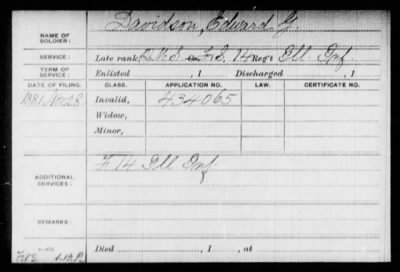 NAME OF SOLDIER: Davidson, Edward G.
SERVICE: Late rank, F.S. 14 Reg't Ill. Inf.
TERM OF SERVICE: Enlisted , 1 Discharged , 1
DATE OF FILING. CLASS. APPLICATION NO. LAW. CERTIFICATE NO.
1881, 28 Invalid, 434065
Widow,
Minor,
ADDITIONAL SERVICES: F 14 Ill Inf
REMARKS:
Died , 1 , at